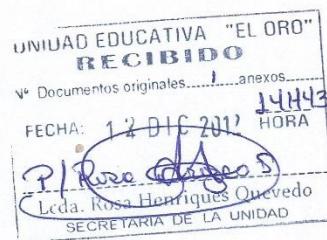 UNIUAD EDUCATIVA "EL ORO"
RECIBIDO
Nº Documentos originales 1 anexos
14H43
FECHA: 12 DIC 2012 HORA
P/ Rosa
Lcda. Rosa Henriques Quevedo
SECRETARIA DE LA UNIDAD